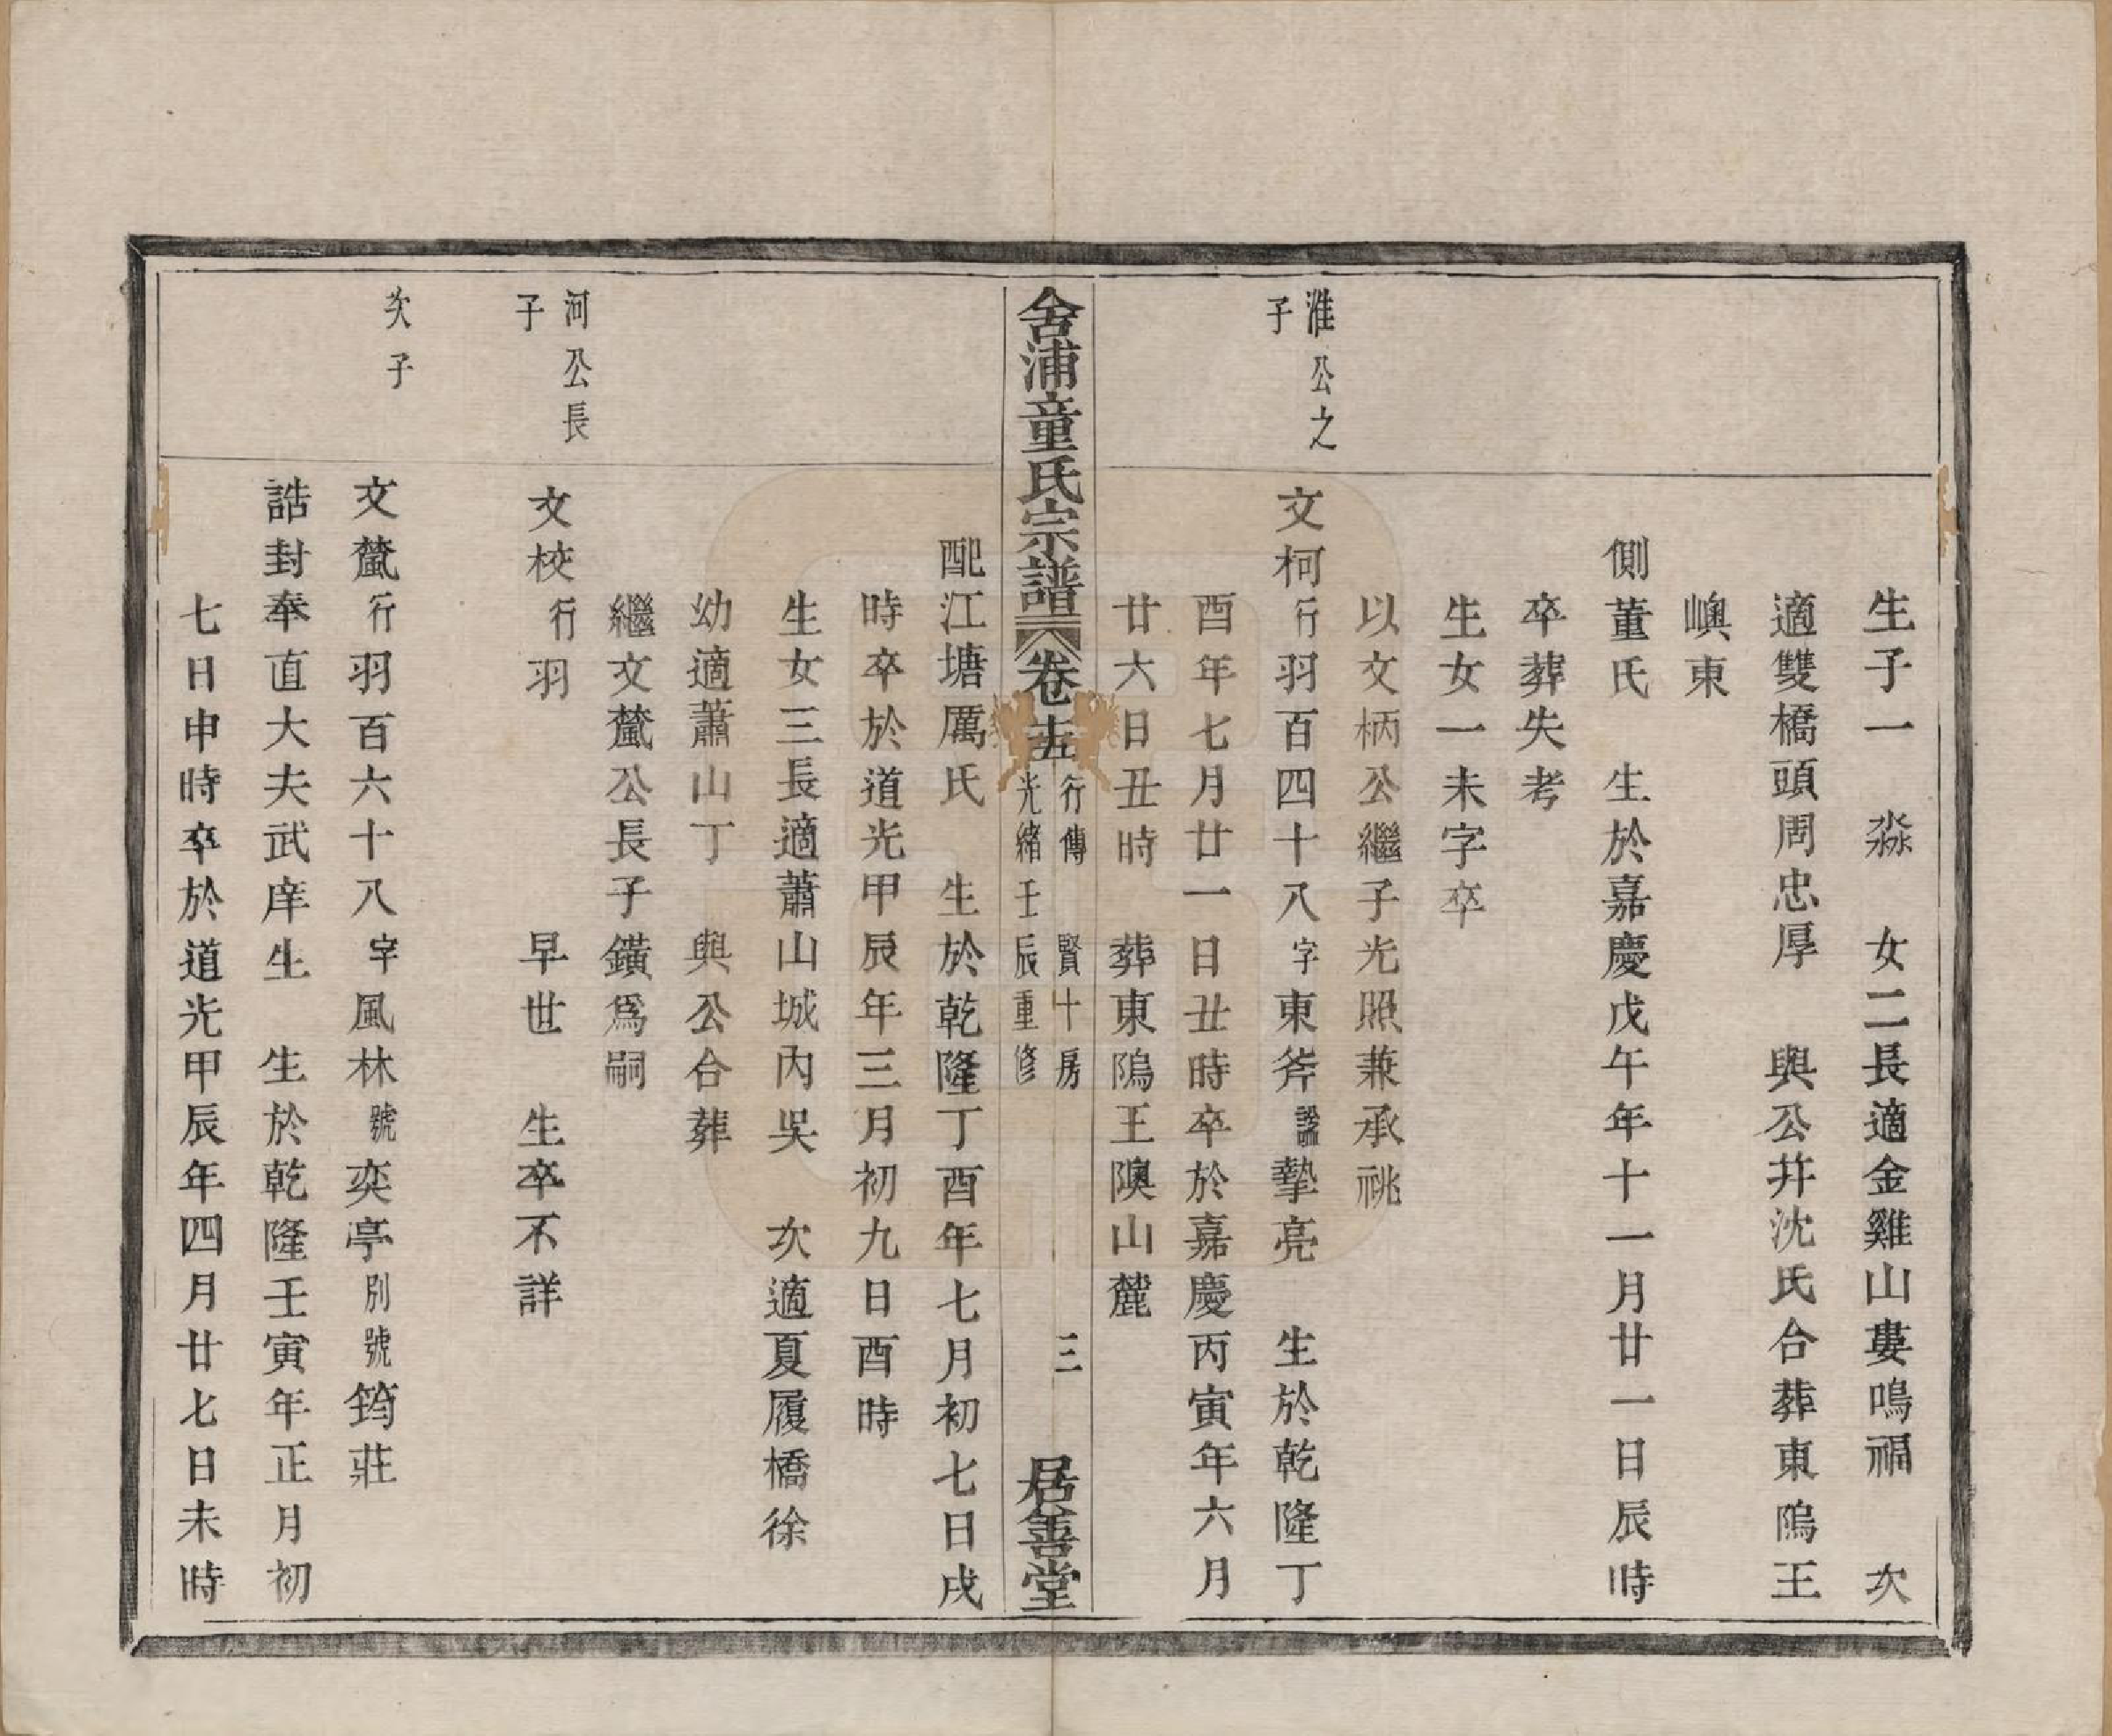 生子一　淼　女二長適金雞山婁鳴福　次
適雙橋頭周忠厚　與公幷沈氏合葬東隝王
嶼東
側董氏　生於嘉慶戊午年十一月廿一日辰時
卒葬失考
生女一未字卒
以文柄公繼子光照兼承祧
淮公之
子
文柯行羽百四十八字東斧諡摯亮　生於乾隆丁
酉年七月廿一日丑時卒於嘉慶丙寅年六月
廿六日丑時　葬東隝王隩山麓
舍浦童氏宗譜　卷十五　行傳　賢十房　三
光緒壬辰重修
居善堂
配江塘厲氏　生於乾隆丁酉年七月初七日戌
時卒於道光甲辰年三月初九日酉時
生女三長適蕭山城內吳　次適夏履橋徐
幼適蕭山丁　與公合葬
繼文虨公長子鐄爲嗣
河公長
子
文校行羽　早世　生卒不詳
次子
文虨行羽百六十八字風林號奕亭別號筠莊
誥封奉直大夫武庠生　生於乾隆壬寅年正月初
七日申時卒於道光甲辰年四月廿七日未時